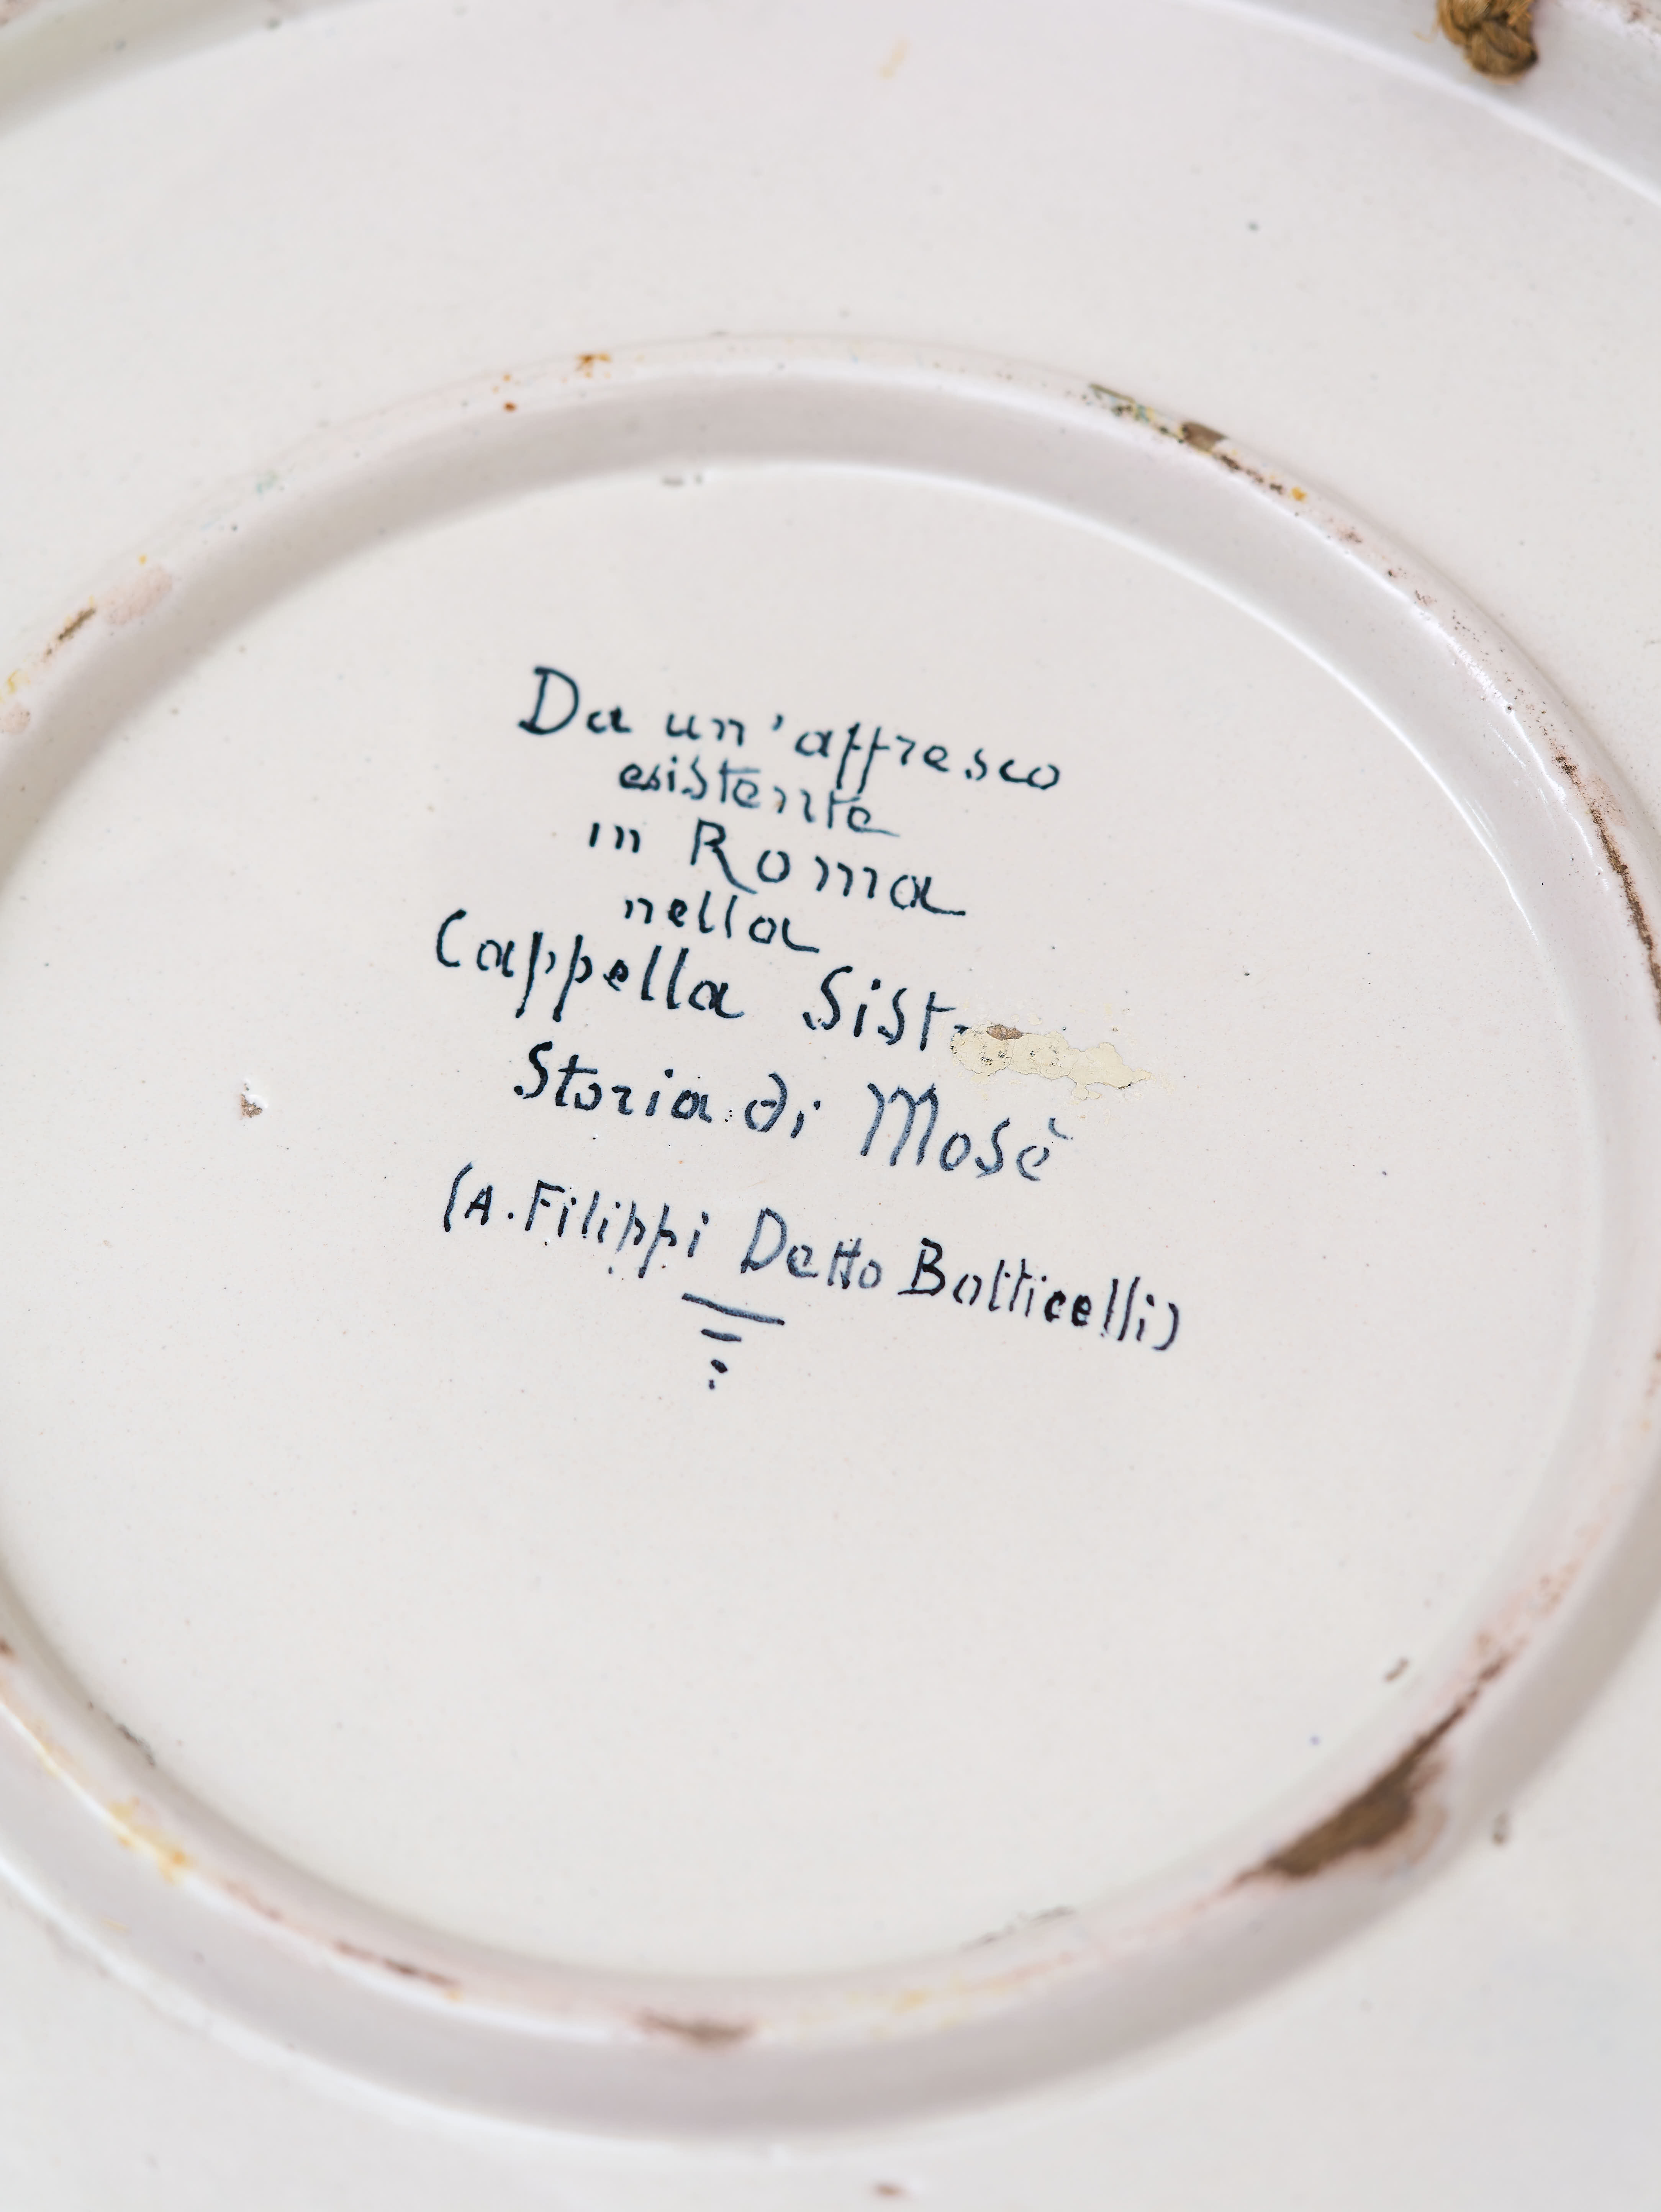 Da un'affresco
esistente
in Roma
nella
Cappella Sist
Storia di Mosè
(A. Filippi Detto Botticelli)